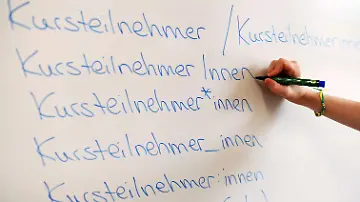 Kursteilnehmer / Kursteilnehmerinnen
Kursteilnehmer/innen
Kursteilnehmer*innen
Kursteilnehmer_innen
Kursteilnehmer:innen